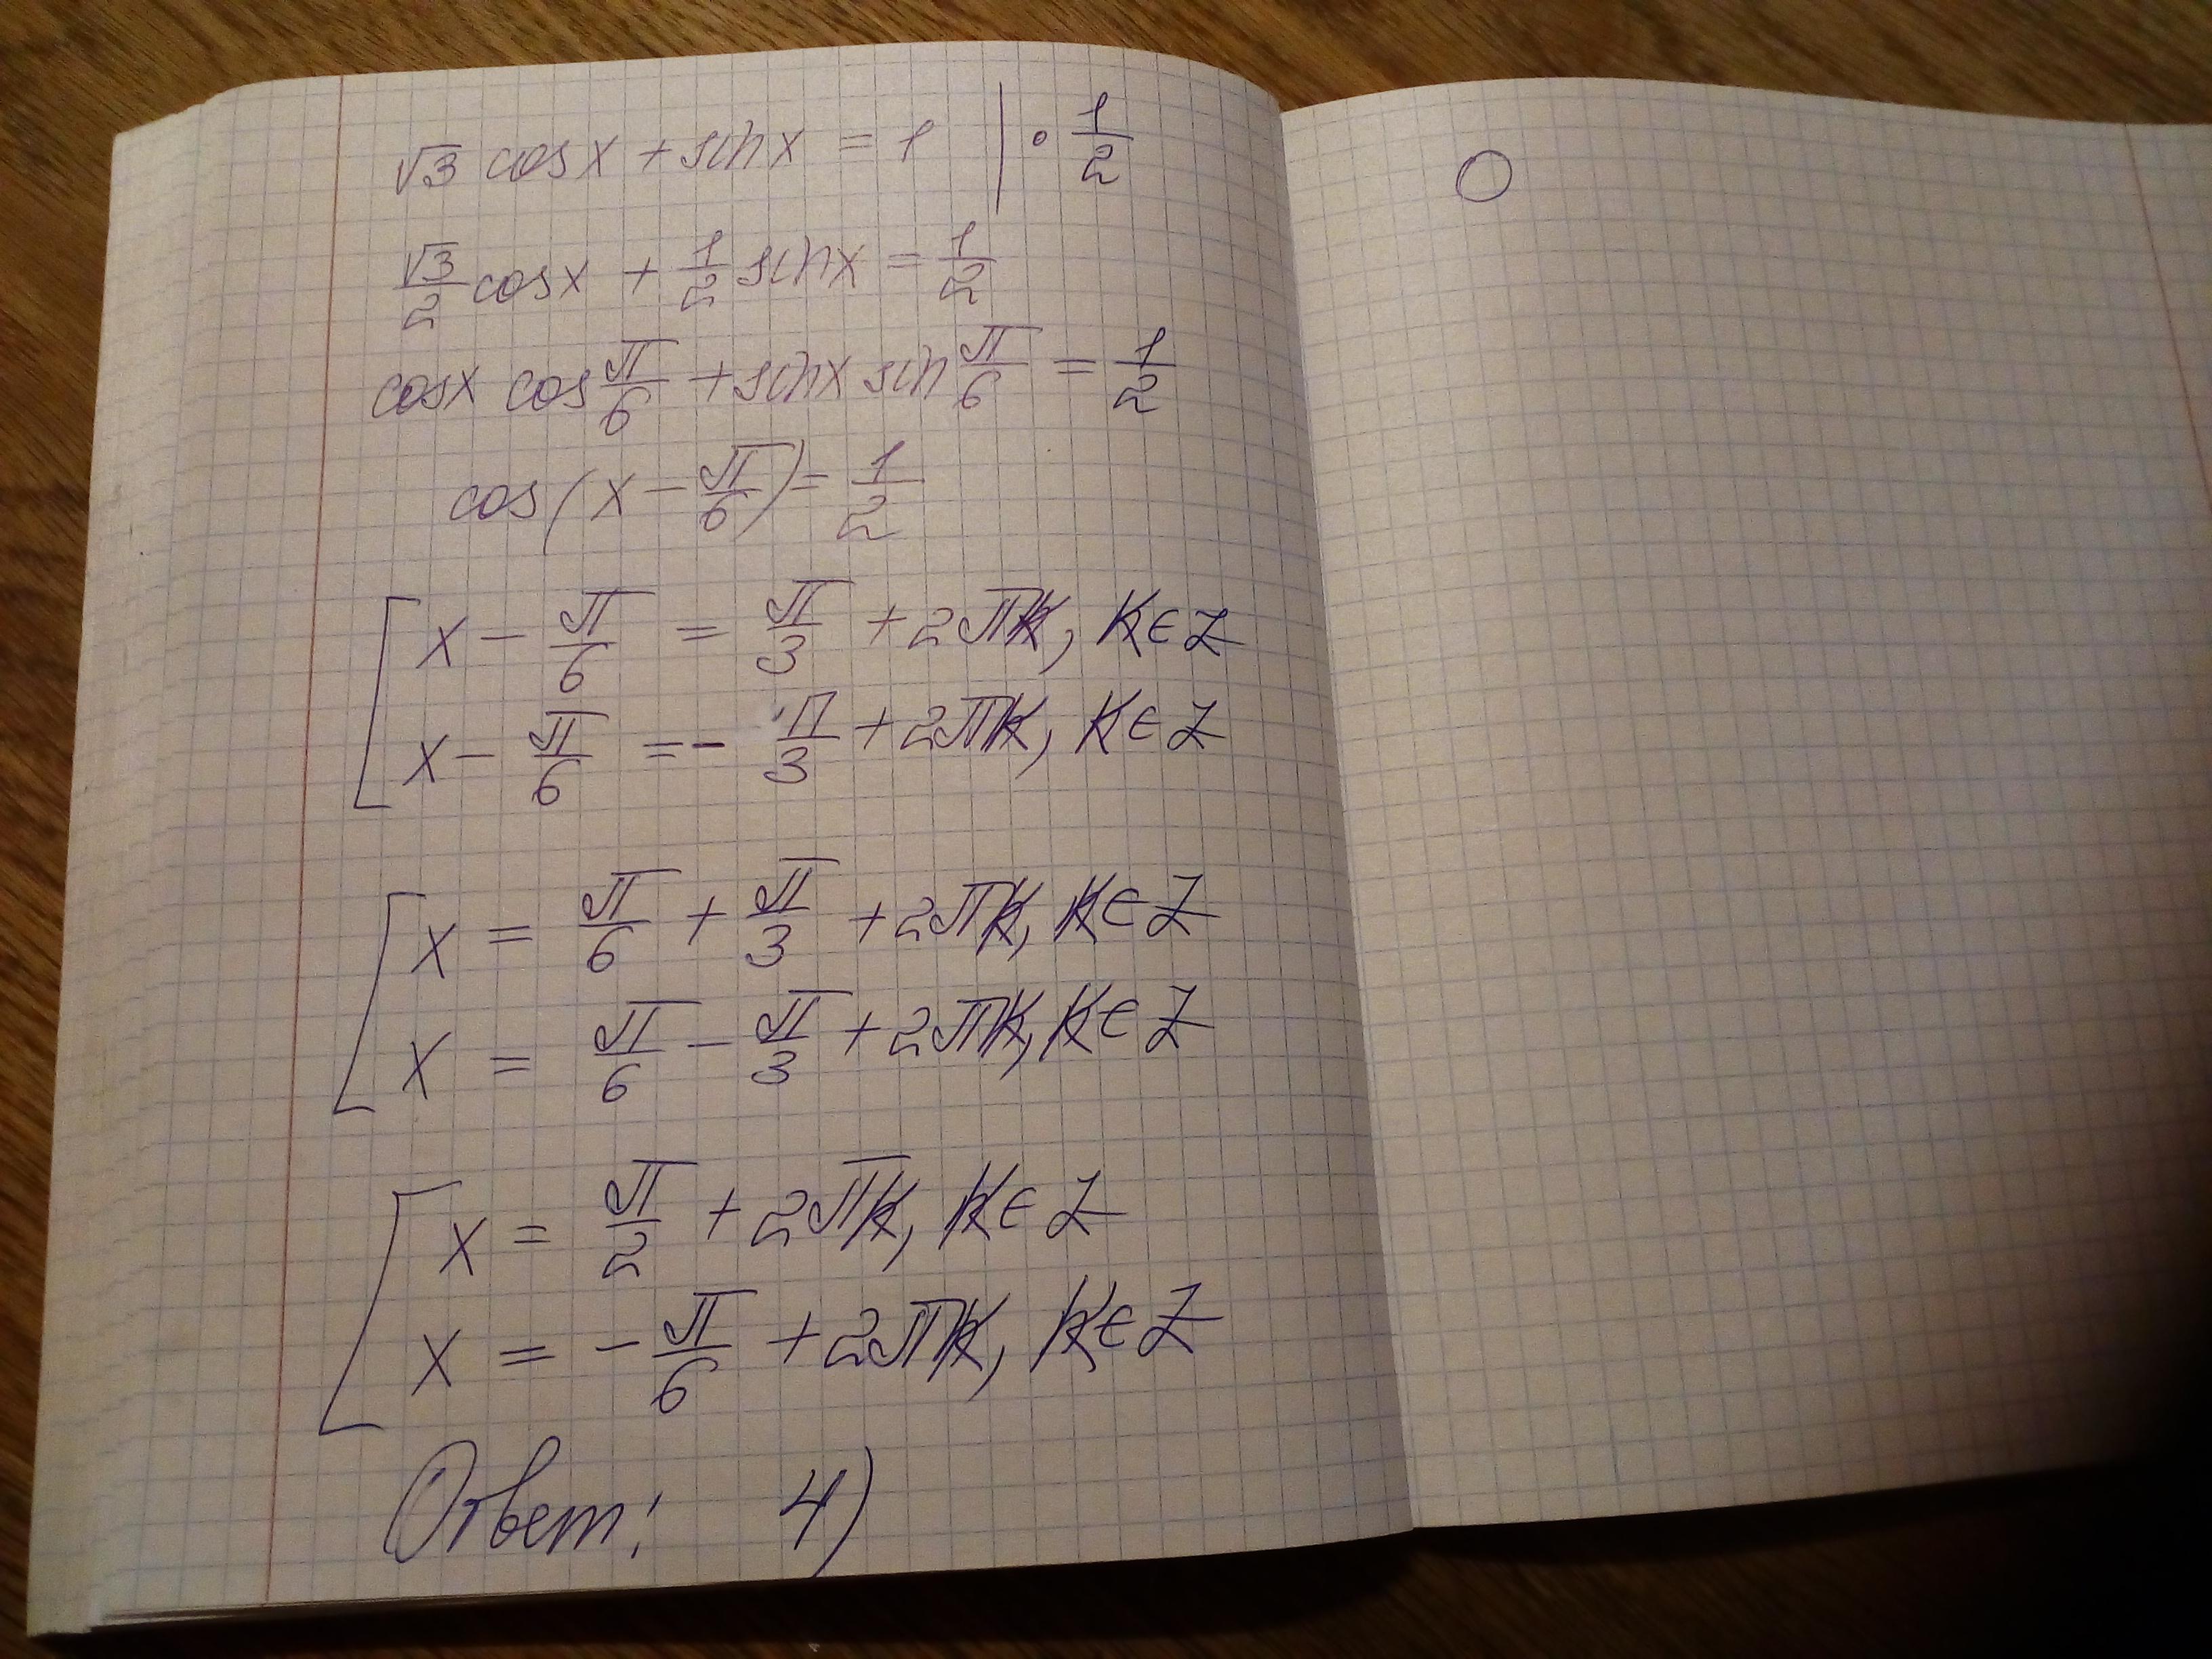 √3 cosx + sinx = 1 | · 1/2
√3/2 cosx + 1/2 sinx = 1/2
cosx cos π/6 + sinx sin π/6 = 1/2
cos(x − π/6) = 1/2
x − π/6 = π/3 + 2πk, k∈Z
x − π/6 = − π/3 + 2πk, k∈Z
x = π/6 + π/3 + 2πk, k∈Z
x = π/6 − π/3 + 2πk, k∈Z
x = π/2 + 2πk, k∈Z
x = − π/6 + 2πk, k∈Z
Ответ: 4)